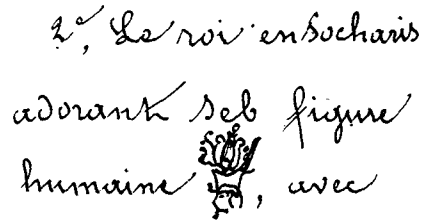 2°, Le roi en Socharis
adorant Seb figure
humaine , avec